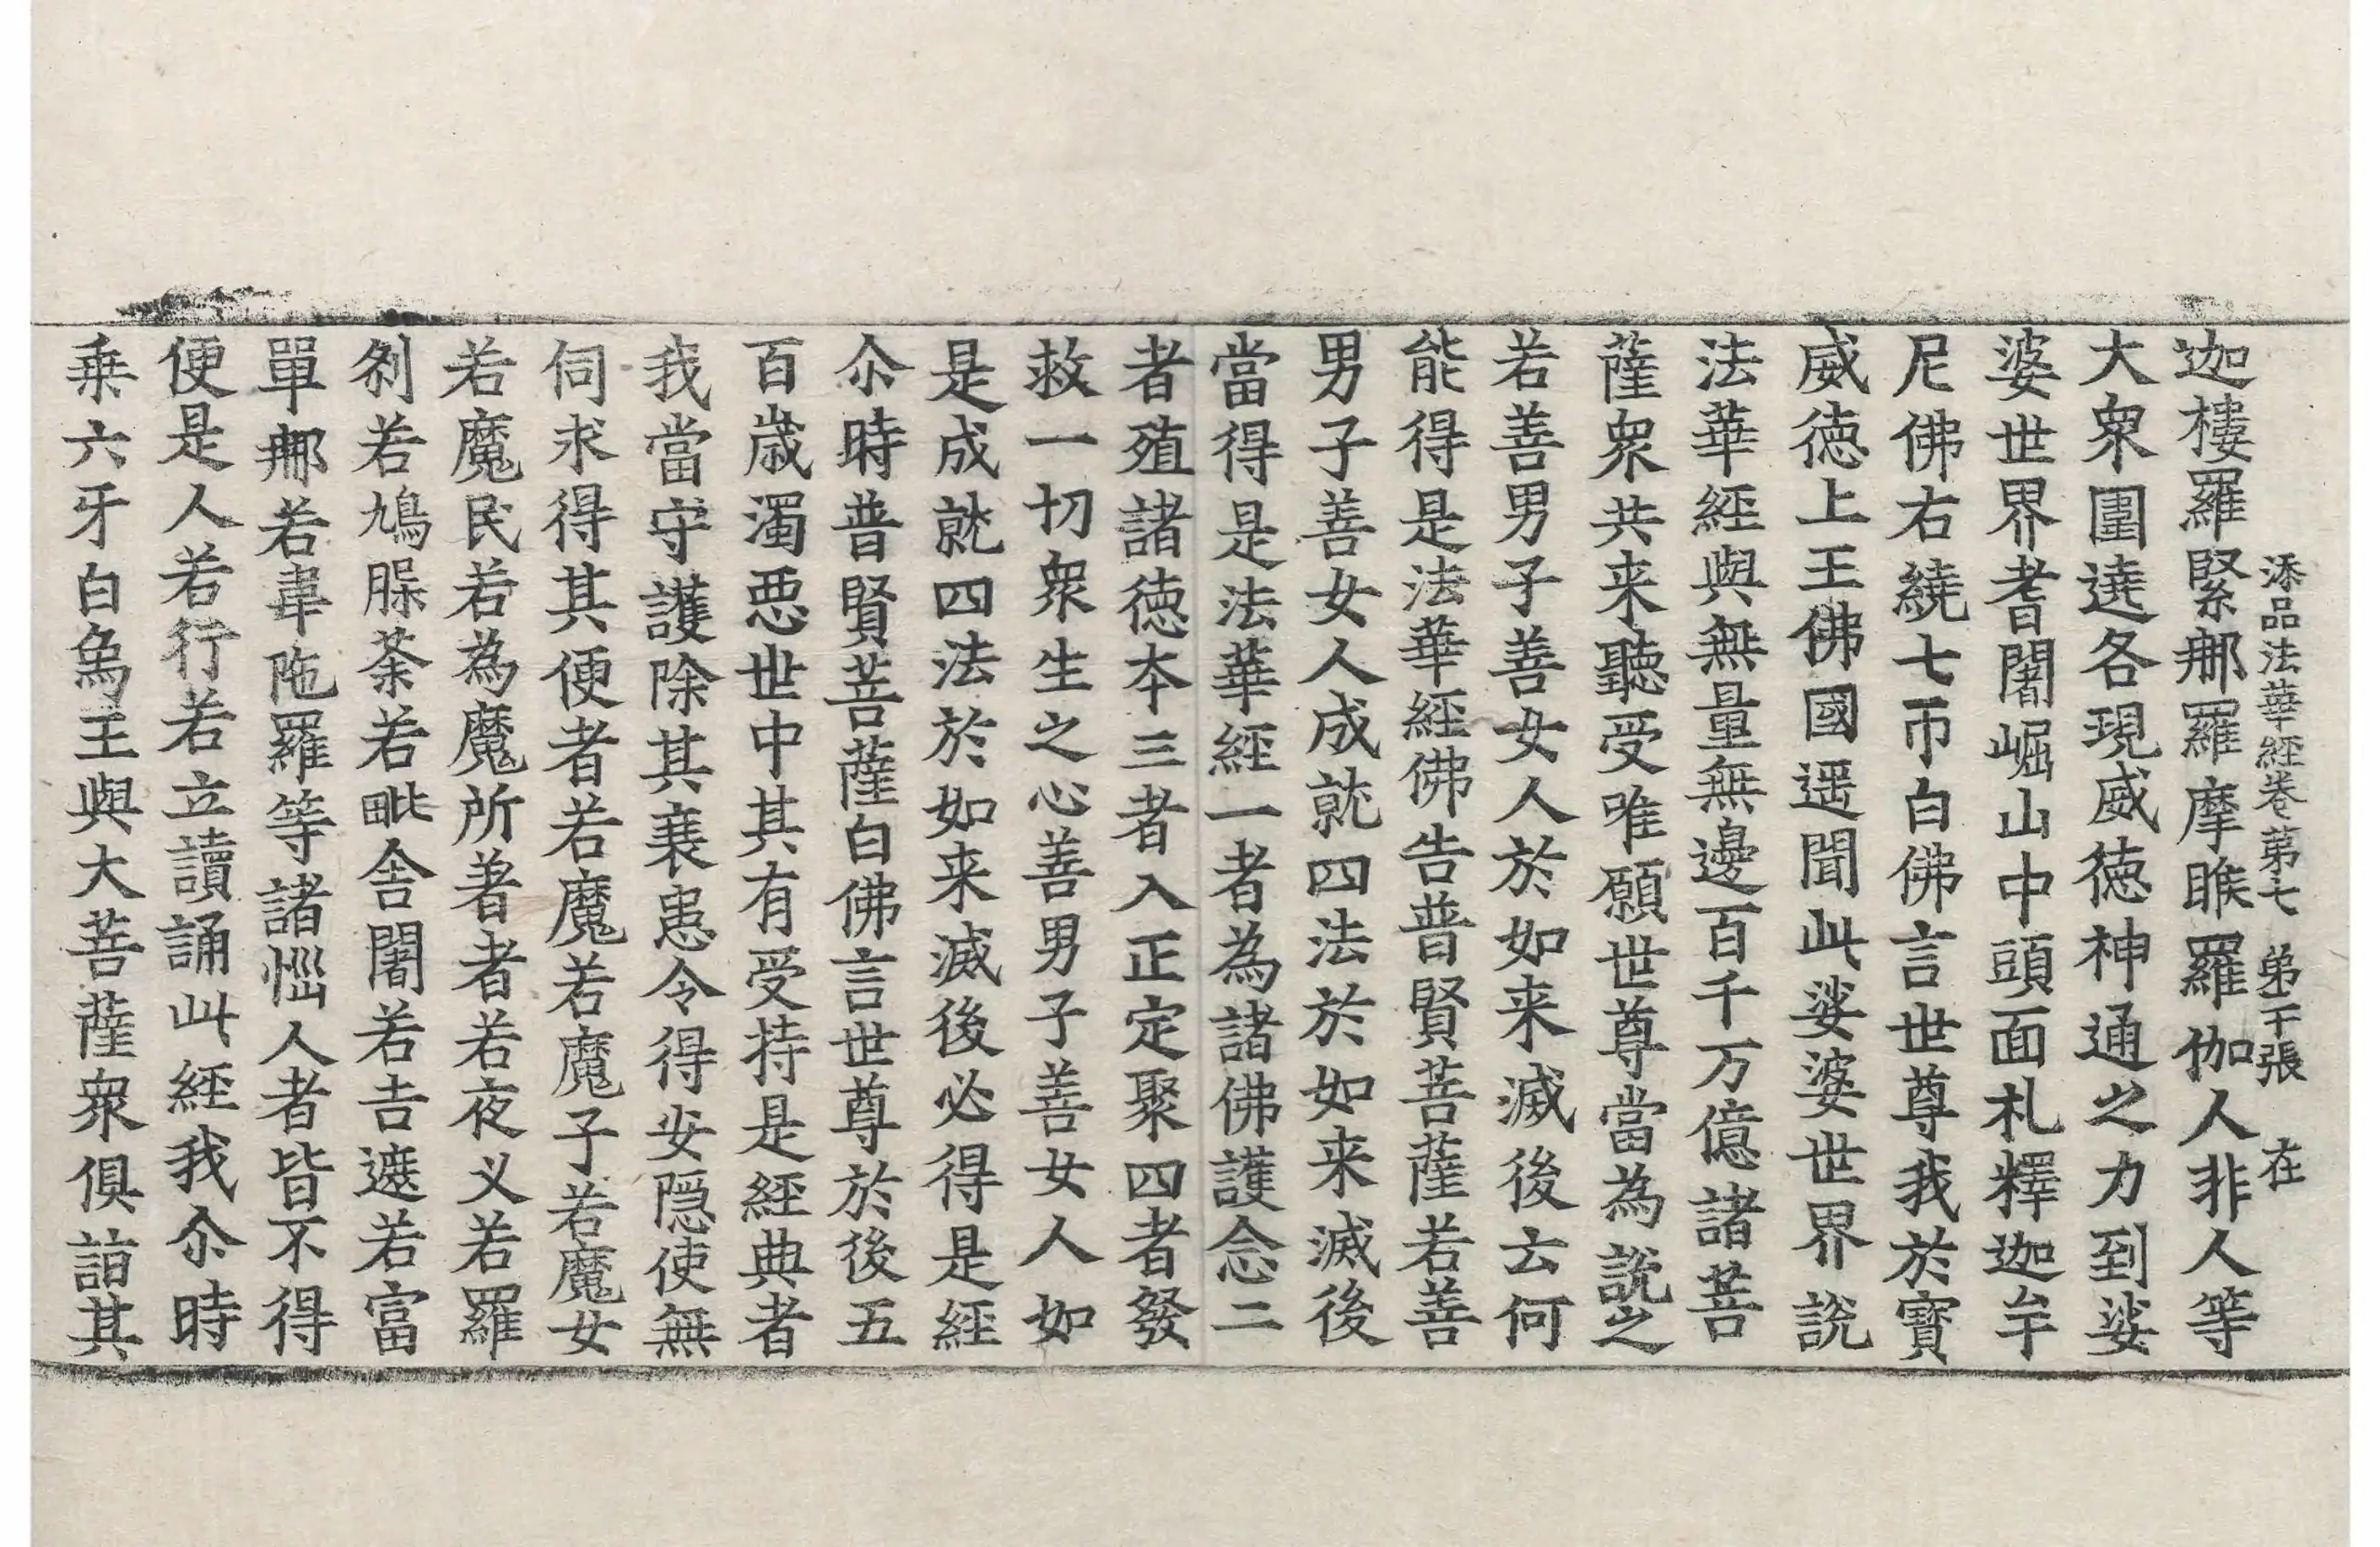 添品法華經卷第七 第二十張 在
迦樓羅緊那羅摩睺羅伽人非人等
大衆圍遶各現威徳神通之力到娑
婆世界耆闍崛山中頭面礼釋迦牟
尼佛右繞七帀白佛言世尊我於寳
威徳上王佛國遥聞此娑婆世界說
法華經與無量無邊百千万億諸菩
薩衆共来聽受唯願世尊當為說之
若善男子善女人於如来滅後云何
能得是法華經佛告普賢菩薩若善
男子善女人成就四法於如来滅後
當得是法華經一者為諸佛護念二
者殖諸徳本三者入正定聚四者發
救一切衆生之心善男子善女人如
是成就四法於如来滅後必得是經
尒時普賢菩薩白佛言世尊於後五
百歳濁惡世中其有受持是經典者
我當守護除其衰患令得安隠使無
伺求得其便者若魔若魔子若魔女
若魔民若為魔所著者若夜义若羅
刹若鳩槃茶若毗舍闍若吉遮若富
單那若韋陁羅等諸惱人者皆不得
便是人若行若立讀誦此經我尒時
乗六牙白象王與大菩薩衆俱詣其